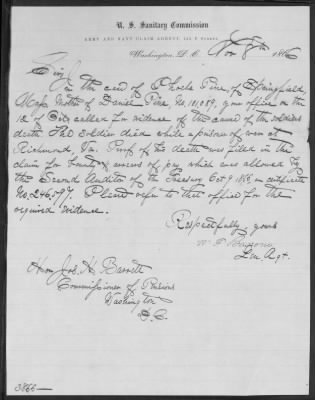 U. S. Sanitary Commission
ARMY AND NAVY CLAIM AGENCY, 244 F STREET.
Washington, D. C. Nov 8th 1866
Sir,
In the case of Phoebe Pine, of Springfield,
Mass Mother of Daniel Pine, No, 101,089, your office on the
12 of Oct, called for evidence of the cause of the soldiers
death. The soldier died while a prisoner of war at
Richmond, Va. Proof of his death was filed in the
claim for bounty & arrears of pay which was allowed by
the Second Auditor of the Treasury Oct 9, on certificate
No, 246,597. Please refer to that office for the
required evidence.
Respectfully yours
W. F.
Hon Jos. H. Barrett
Commissioner of Pensions
Washington
D. C.
3866